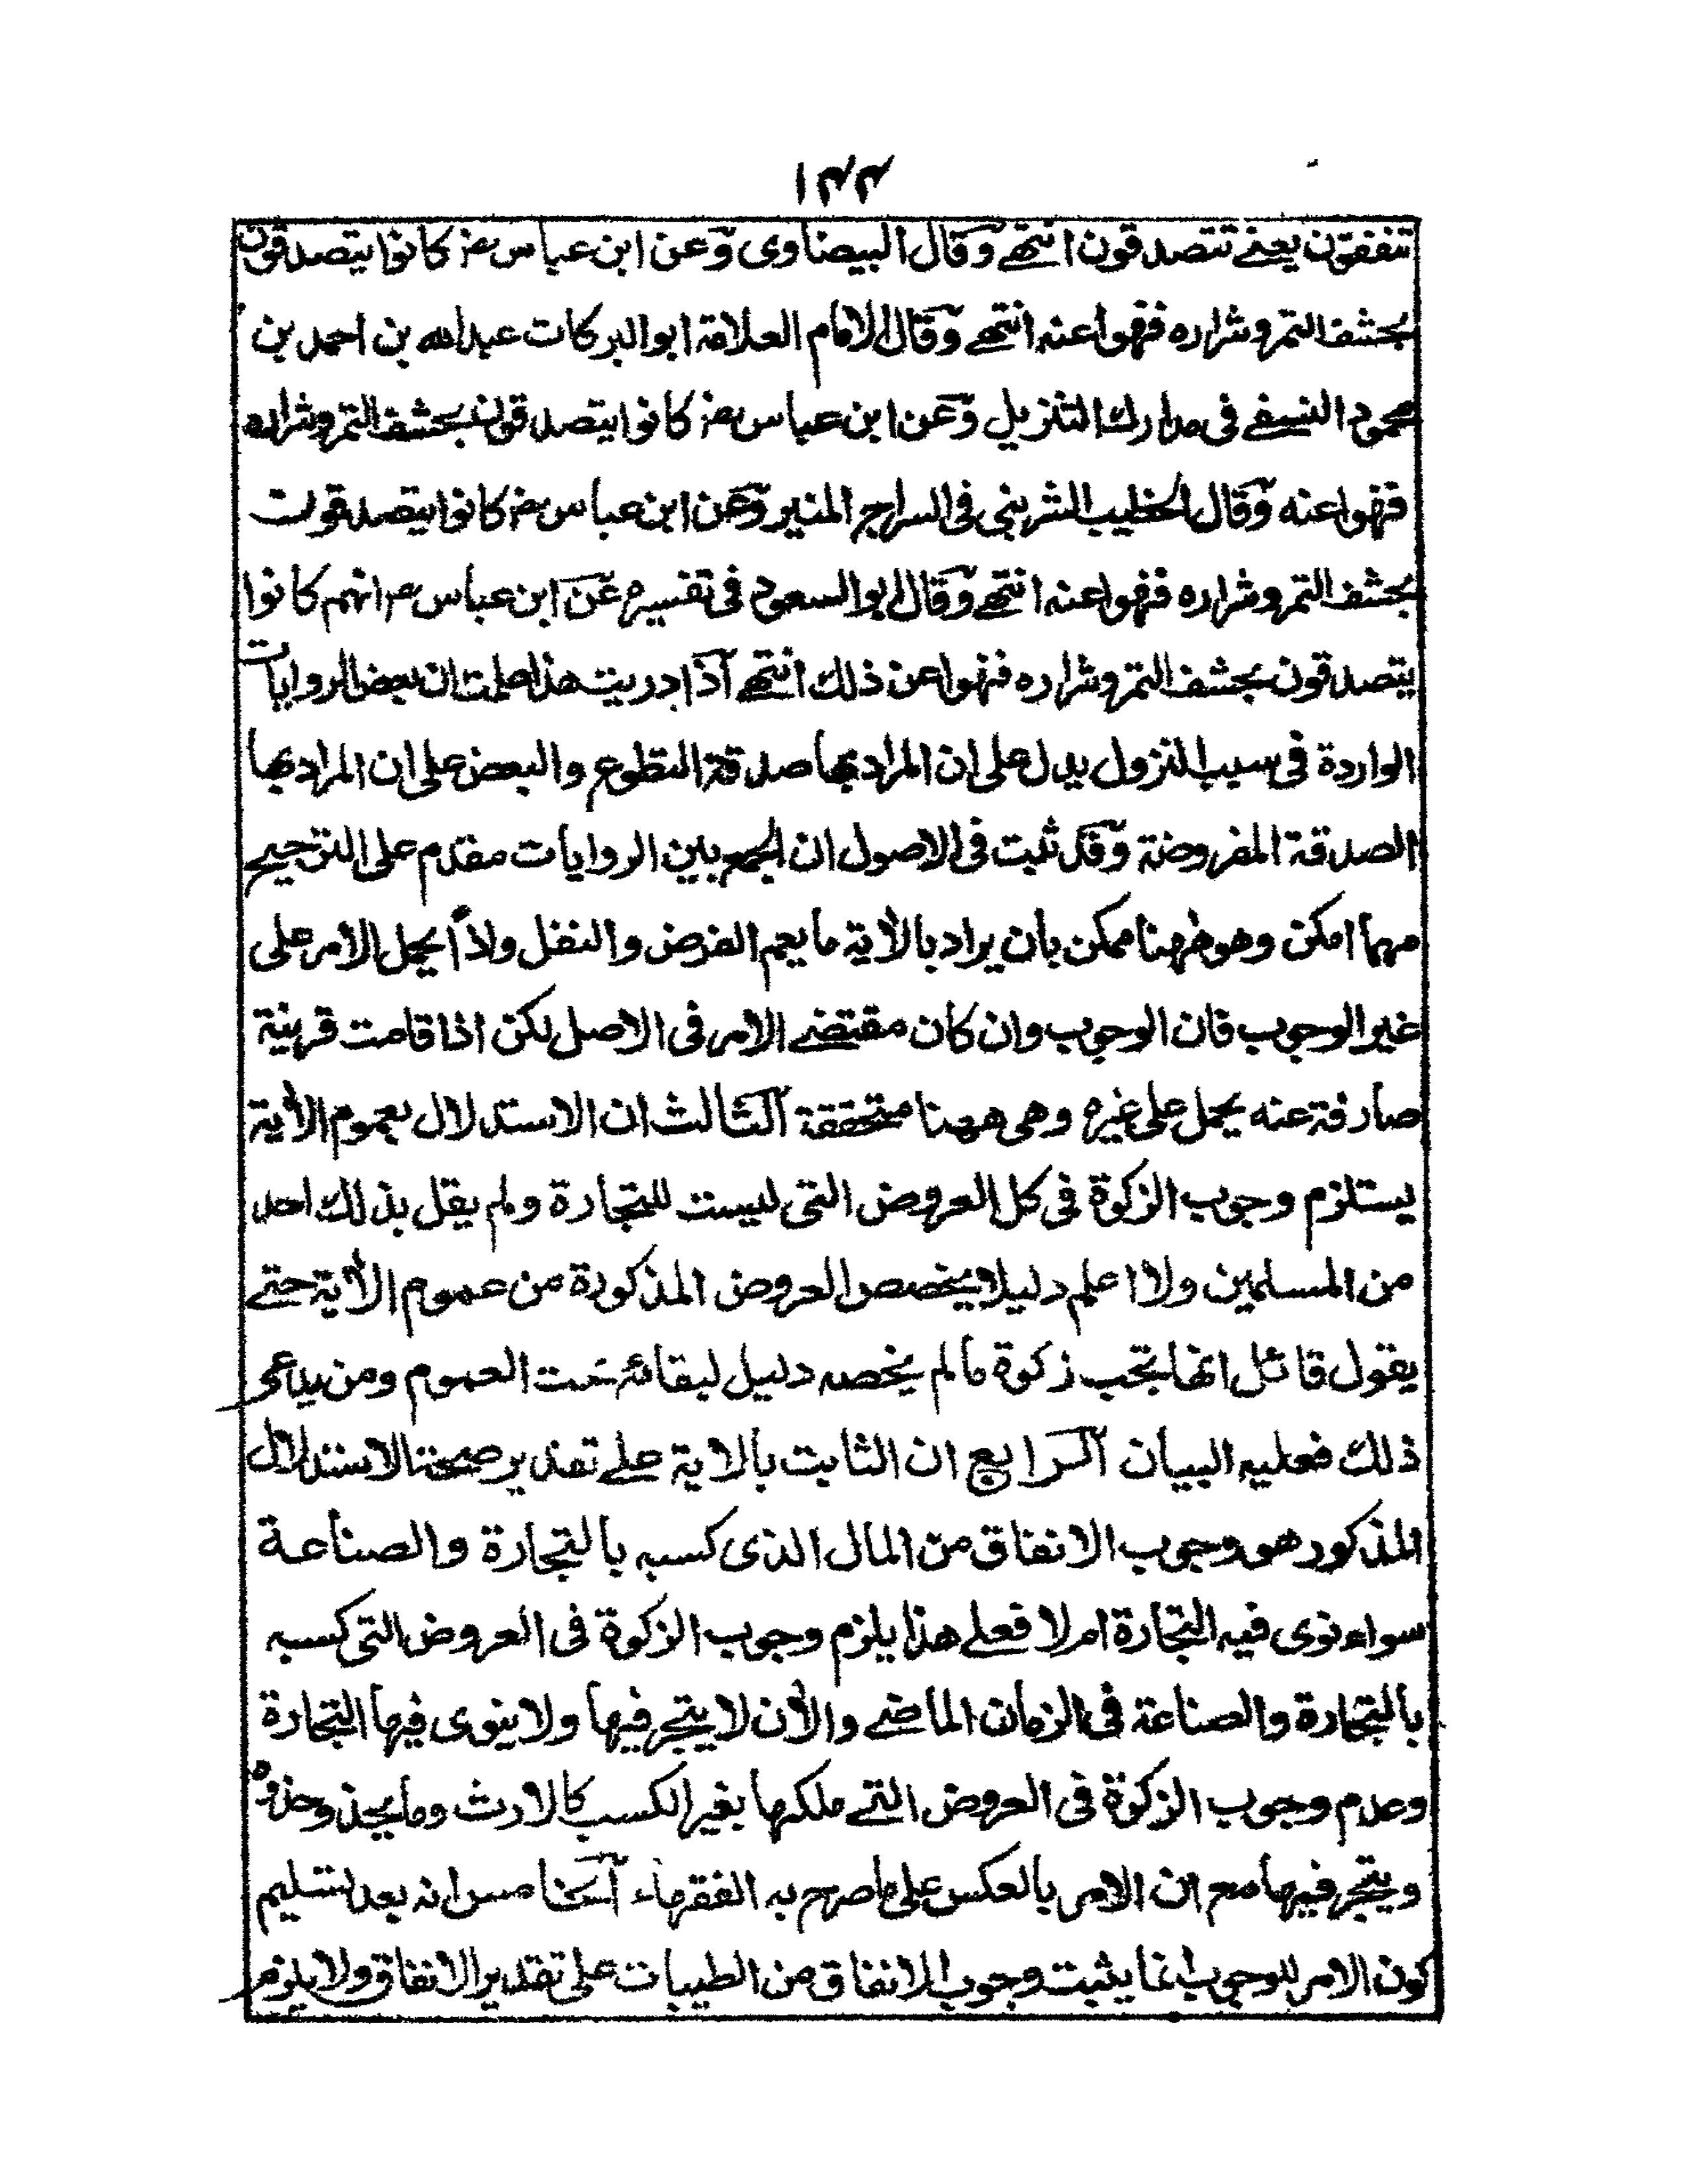 ١٤٤
تنفقون يعنے تتصدقون انتھے وقال البيضاوى وعن ابن عباس رض كانوا يتصدقون
بحشف التمر وشراره فنهوا عنه انتھے وقال الامام العلامة ابو البركات عبد الله بن احمد بن
محمود النسفے فى مدارك التنزيل وعن ابن عباس رض كانوا يتصدقون بحشف التمر وشراره
فنهوا عنه وقال الخطيب الشربينى فى السراج المنير وعن ابن عباس رض كانوا يتصدقون
بحشف التمر وشراره فنهوا عنه انتھے وقال ابو السعود فى تفسيره عن ابن عباس رض انهم كانوا
يتصدقون بحشف التمر وشراره فنهوا عن ذلك انتھے اذا دريت هذا علمت ان بعض الروايات
الواردة فى سبب النزول يدل على ان المراد بها صدقة التطوع والبعض على ان المراد بها
الصدقة المفروضة وقد ثبت فى الاصول ان الجمع بين الروايات مقدم على الترجيح
مهما امكن وهو ههنا ممكن بان يراد بالأية ما يعم الفرض والنفل ولذا يحمل الامر على
غير الوجوب فان الوجوب وان كان مقتضے الامر فى الاصل لكن اذا قامت قرينة
صارفة عنه يحمل على غيره وهى ههنا متحققة الثالث ان الاستدلال بعموم الأية
يستلزم وجوب الزكوة فى كل العروض التى ليست للتجارة ولم يقل بذلك احد
من المسلمين ولا اعلم دليلا يخصص العروض المذكورة من عموم الأية حتے
يقول قائل انها تجب زكوة ما لم يخصه دليل لبقائه تحت العموم ومن يدعى
ذلك فعليه البيان الرابع ان الثابت بالاية علے تقدير صحة الاستدلال
المذكور هو وجوب الانفاق من المال الذى كسبه بالتجارة والصناعة
سواء نوى فيه التجارة ام لا فعلے هذا يلزم وجوب الزكوة فى العروض التى كسبه
بالتجارة والصناعة فى الزمان الماضے والأن لا يتجر فيها ولا ينوى فيها التجارة
وعدم وجوب الزكوة فى العروض التے ملكها بغير الكسب كالارث وما يحذو حذوه
ويتجر فيها مع ان الامر بالعكس على ما صرح به الفقهاء الخامس انه بعد تسليم
كون الامر للوجوب انما يثبت وجوب الانفاق من الطيبات على تقدير الانفاق ولا يلزم